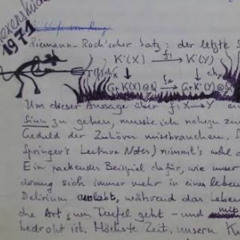 1971
Riemann-Roch'scher Satz: der letzte
K·(X) f! K·(Y)
Gr K·(X)⊗ f* Gr K·(Y)⊗
Um dieser Aussage über f: X → Y
Sinn zu geben, musste ich nahezu
Geduld der Zuhörer missbrauchen.
Springer's Lecture Notes) nimmt's wohl
Ein packendes Beispiel dafür, wie unser
drang sich immer mehr in einem leben
Delirium auslebt, während das Leben
che Art zum Teufel geht – und mit
bedroht ist. Höchste Zeit, unsern K